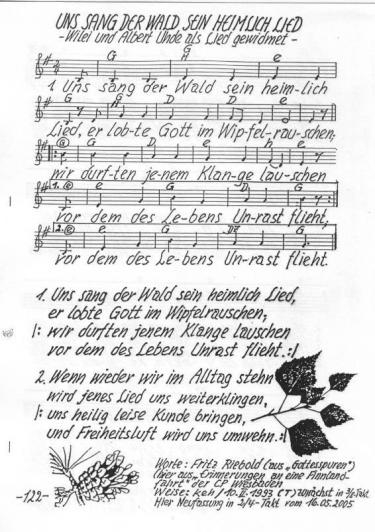 UNS SANG DER WALD SEIN HEIMLICH LIED
- Wilei und Albert Unde als Lied gewidmet -
G H e
1 Uns sang der Wald sein heim-lich
G H G D D G
Lied, er lob-te Gott im Wip-fel-rau-schen;
G G D e h e
wir durf-ten je-nem Klan-ge lau-schen
1. e G D G
vor dem des Le-bens Un-rast flieht,
2. e G D7 G
vor dem des Le-bens Un-rast flieht.
1. Uns sang der Wald sein heimlich Lied,
er lobte Gott im Wipfelrauschen;
|: wir durften jenem Klange lauschen
vor dem des Lebens Unrast flieht. :|
2. Wenn wieder wir im Alltag stehn
wird jenes Lied uns weiterklingen,
|: uns heilig leise Kunde bringen,
und Freiheitsluft wird uns umwehn. :|
Worte: Fritz Riebold (aus "Gottesspuren")
über aus "Erinnerungen an eine Finnland-
fahrt" der CP Wiesbaden
Weise: keh / 10. II. 1993 (T) zunächst in
Hier Neufassung in 3/4-Takt vom 16.05.2005
-122-